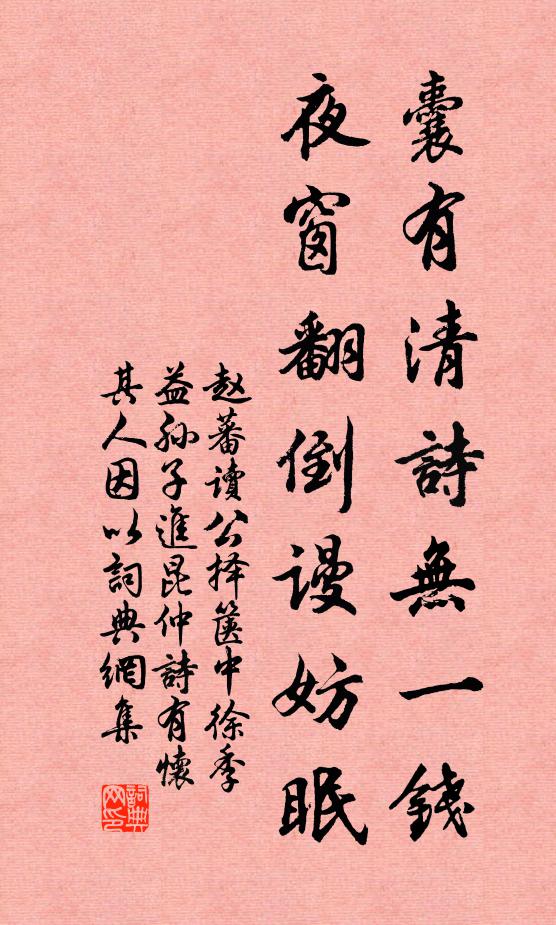 囊有清詩無一錢
夜窗翻倒谩妨眠
赵蕃讀公择箧中徐季
益孙子進昆仲詩有懷
其人因以詞典網集
詞典網印